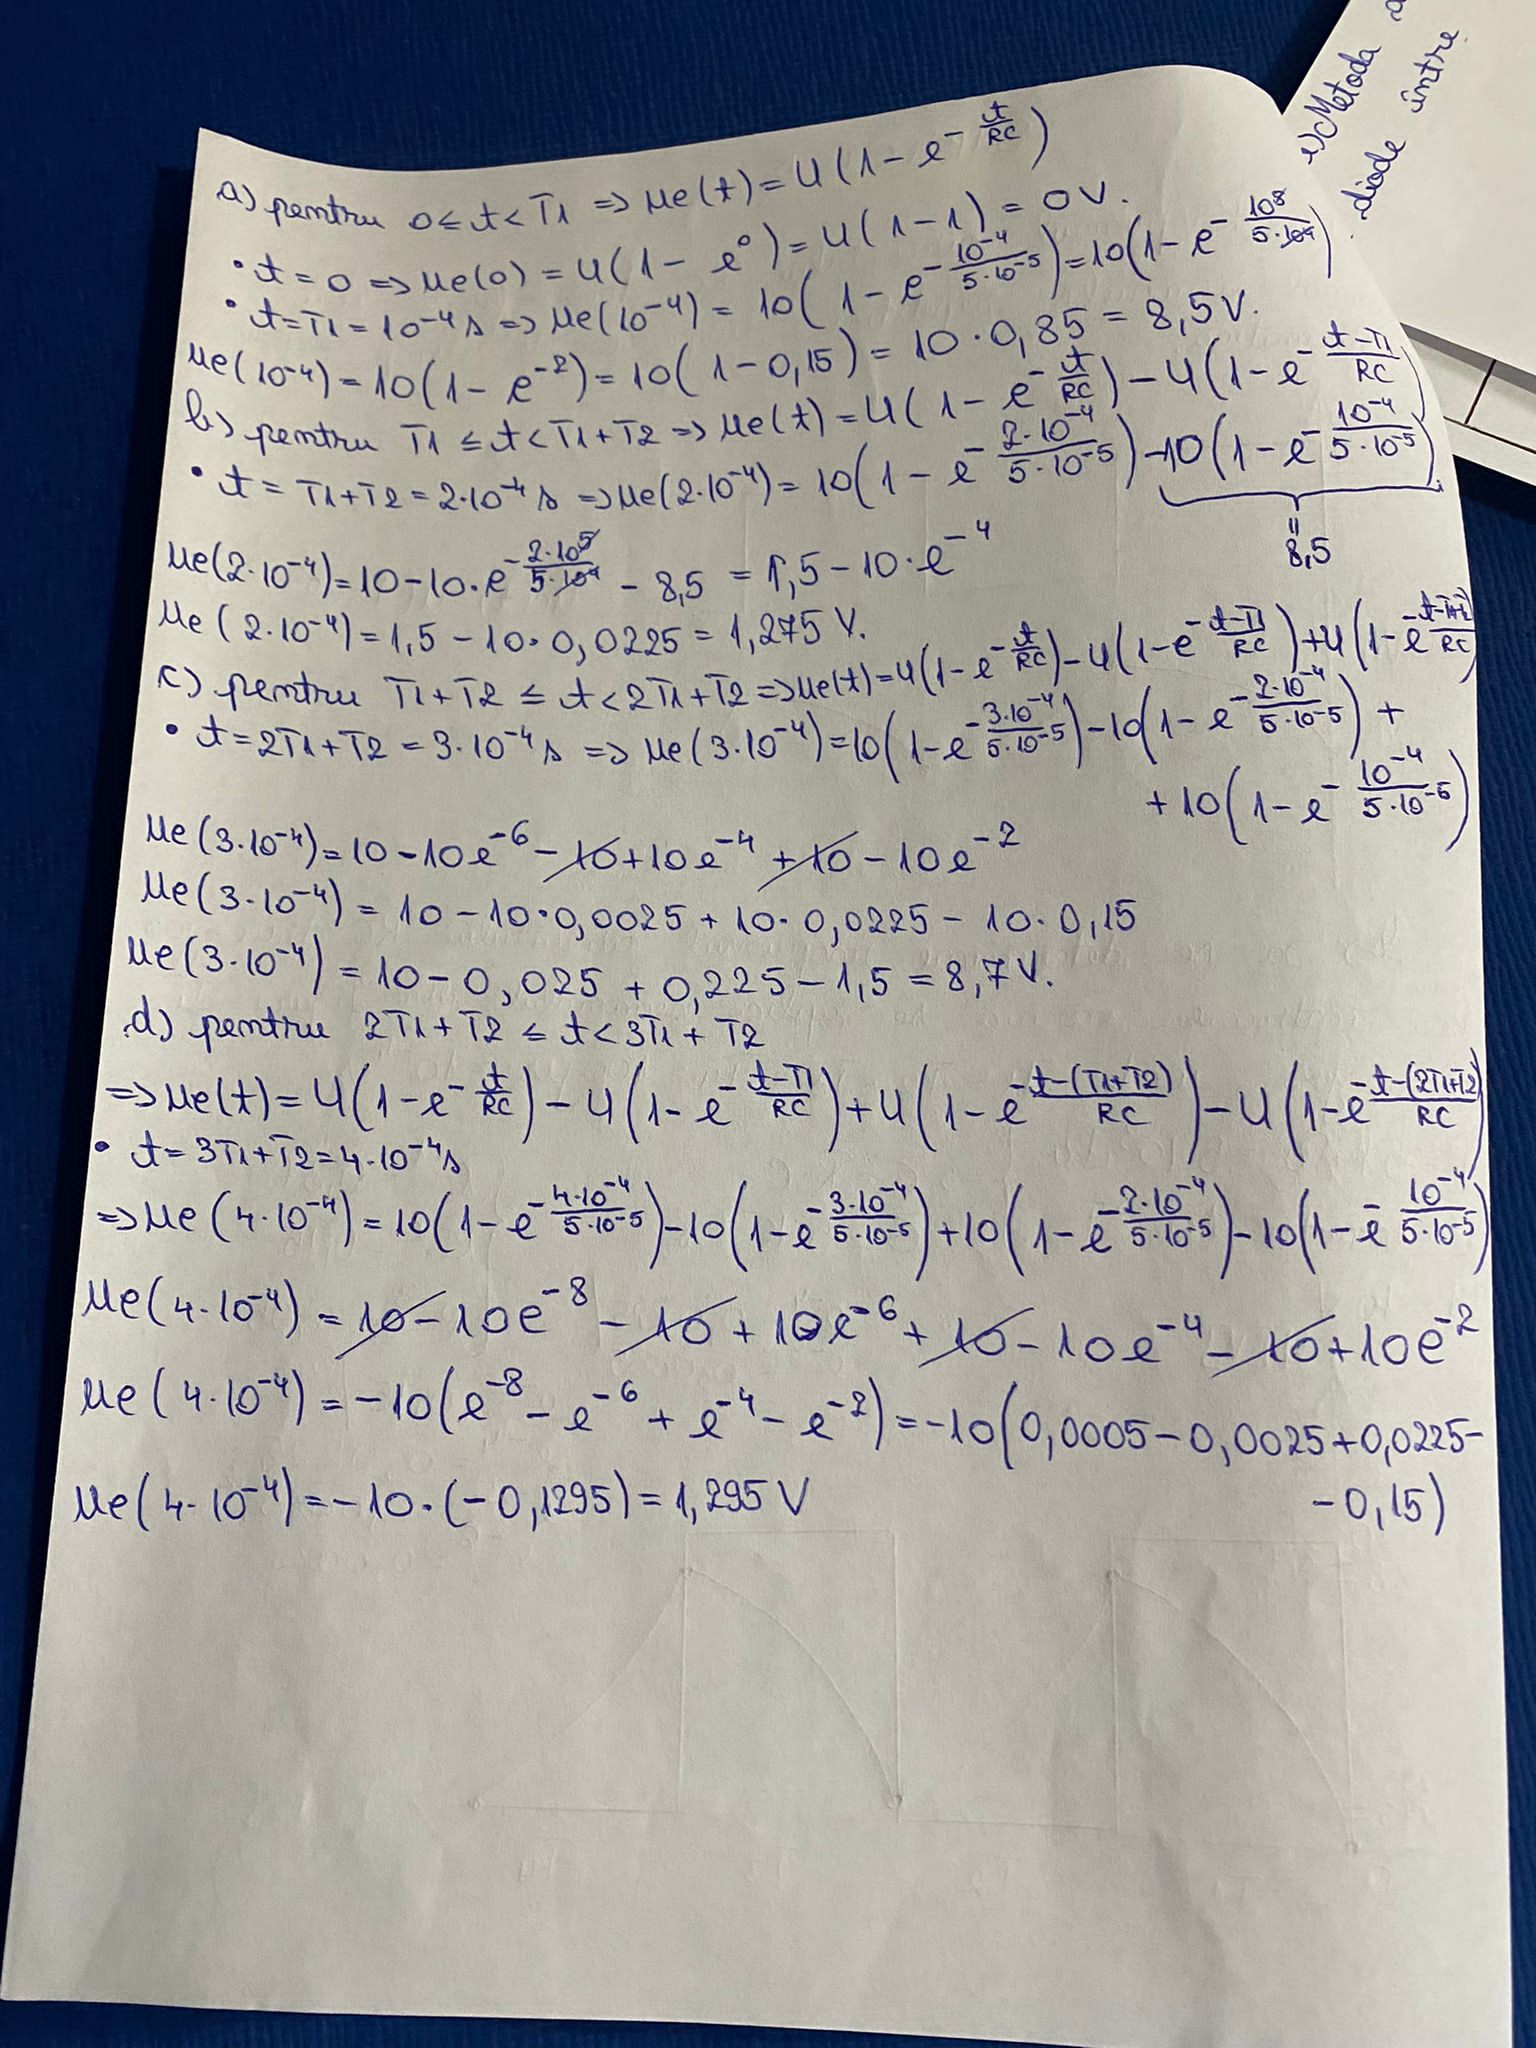 a) pentru 0 ≤ t < T1 => ue(t) = U(1 - e^(-t/RC))
• t = 0 => ue(0) = U(1 - e^0) = U(1-1) = 0V.
• t = T1 = 10^-4 s => ue(10^-4) = 10(1 - e^(-10^-4/(5·10^-5))) = 10(1 - e^(-10^5/(5·10^4)))
ue(10^-4) = 10(1 - e^-2) = 10(1 - 0,15) = 10·0,85 = 8,5V.
b) pentru T1 ≤ t < T1+T2 => ue(t) = U(1 - e^(-t/RC)) - U(1 - e^(-(t-T1)/RC))
• t = T1+T2 = 2·10^-4 s => ue(2·10^-4) = 10(1 - e^(-2·10^-4/(5·10^-5))) - 10(1 - e^(-10^-4/(5·10^-5)))
=
8,5
ue(2·10^-4) = 10 - 10·e^(-2·10^5/(5·10^4)) - 8,5 = 1,5 - 10·e^-4
ue(2·10^-4) = 1,5 - 10·0,0225 = 1,275 V.
c) pentru T1+T2 ≤ t < 2T1+T2 => ue(t) = U(1 - e^(-t/RC)) - U(1 - e^(-(t-T1)/RC)) + U(1 - e^(-/RC)
• t = 2T1+T2 = 3·10^-4 s => ue(3·10^-4) = 10(1 - e^(-3·10^-4/(5·10^-5))) - 10(1 - e^(-2·10^-4/(5·10^-5))) +
+ 10(1 - e^(-10^-4/(5·10^-5)))
ue(3·10^-4) = 10 - 10e^-6 - 10 + 10e^-4 + 10 - 10e^-2
ue(3·10^-4) = 10 - 10·0,0025 + 10·0,0225 - 10·0,15
ue(3·10^-4) = 10 - 0,025 + 0,225 - 1,5 = 8,7V.
d) pentru 2T1+T2 ≤ t < 3T1+T2
=> ue(t) = U(1 - e^(-t/RC)) - U(1 - e^(-(t-T1)/RC)) + U(1 - e^(-(t-(T1+T2))/RC)) - U(1 - e^(-(t-(2T1+T2))/RC))
• t = 3T1+T2 = 4·10^-4 s
=> ue(4·10^-4) = 10(1 - e^(-4·10^-4/(5·10^-5))) - 10(1 - e^(-3·10^-4/(5·10^-5))) + 10(1 - e^(-2·10^-4/(5·10^-5))) - 10(1 - e^(-10^-4/(5·10^-5)))
ue(4·10^-4) = 10 - 10e^-8 - 10 + 10e^-6 + 10 - 10e^-4 - 10 + 10e^-2
ue(4·10^-4) = -10(e^-8 - e^-6 + e^-4 - e^-2) = -10(0,0005 - 0,0025 + 0,0225 -
- 0,15)
ue(4·10^-4) = -10·(-0,1295) = 1,295 V
Metoda
diode între